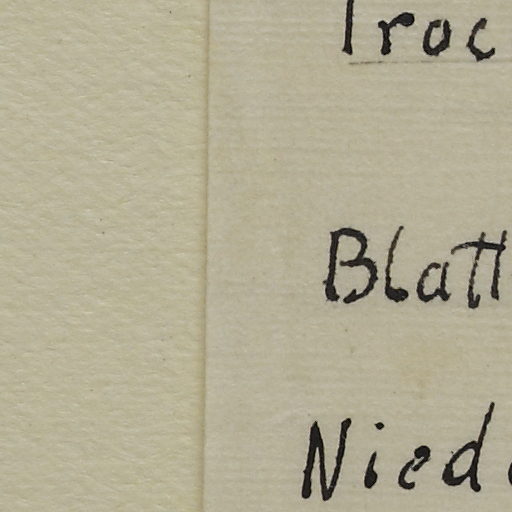 Troc
Blatt
Niede